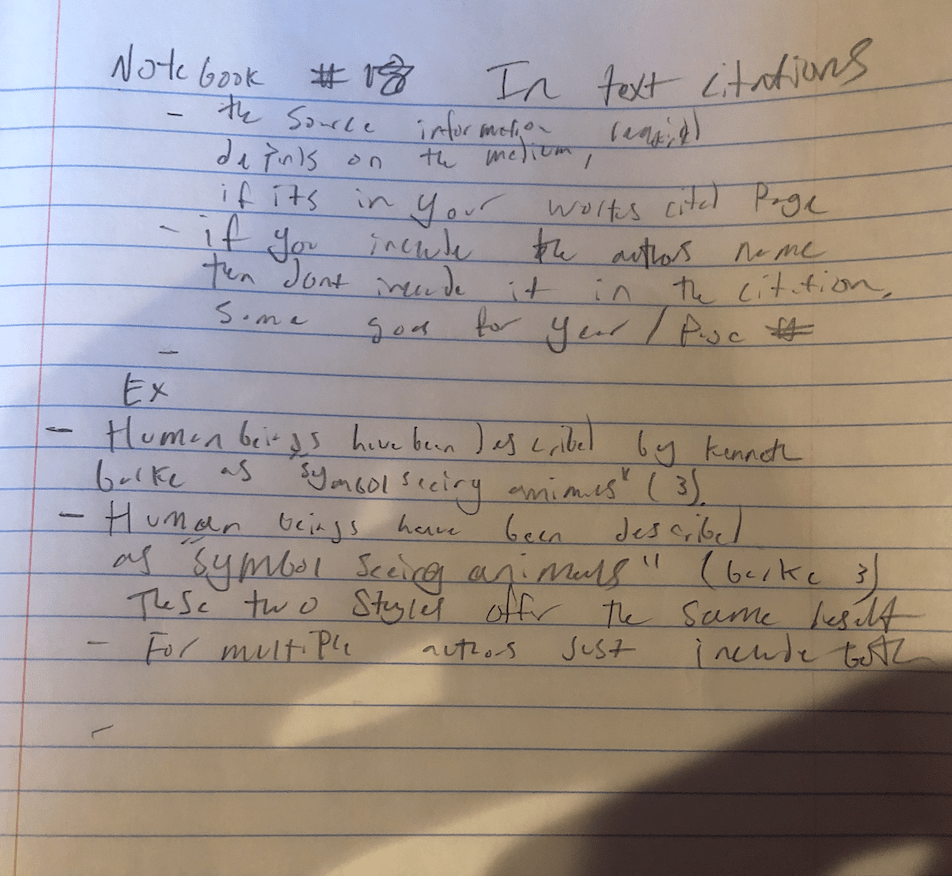 Notebook # In text citations
- the source information required
depends on the medium,
if its in your works cited Page
- if you include the authors name
then dont include it in the citation.
Same goes for year / Page #
-
Ex
- Human beings have been described by Kenneth
burke as "symbol seeing animals" (3).
- Human beings have been described
as "symbol seeing animals" (burke 3)
These two styles offer the same result
- For multiple authors just include both
-